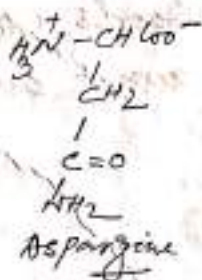 H₃N⁺ – CHCOO⁻
CH2
C=O
NH2
Aspargine